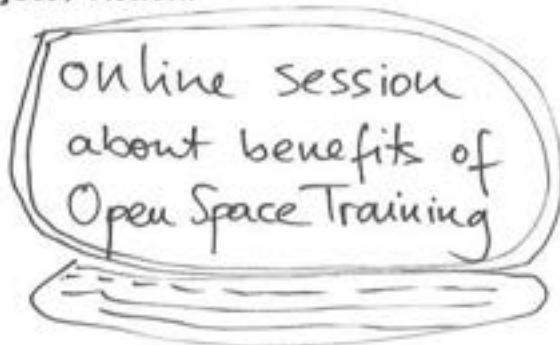 online session
about benefits of
Open Space Training